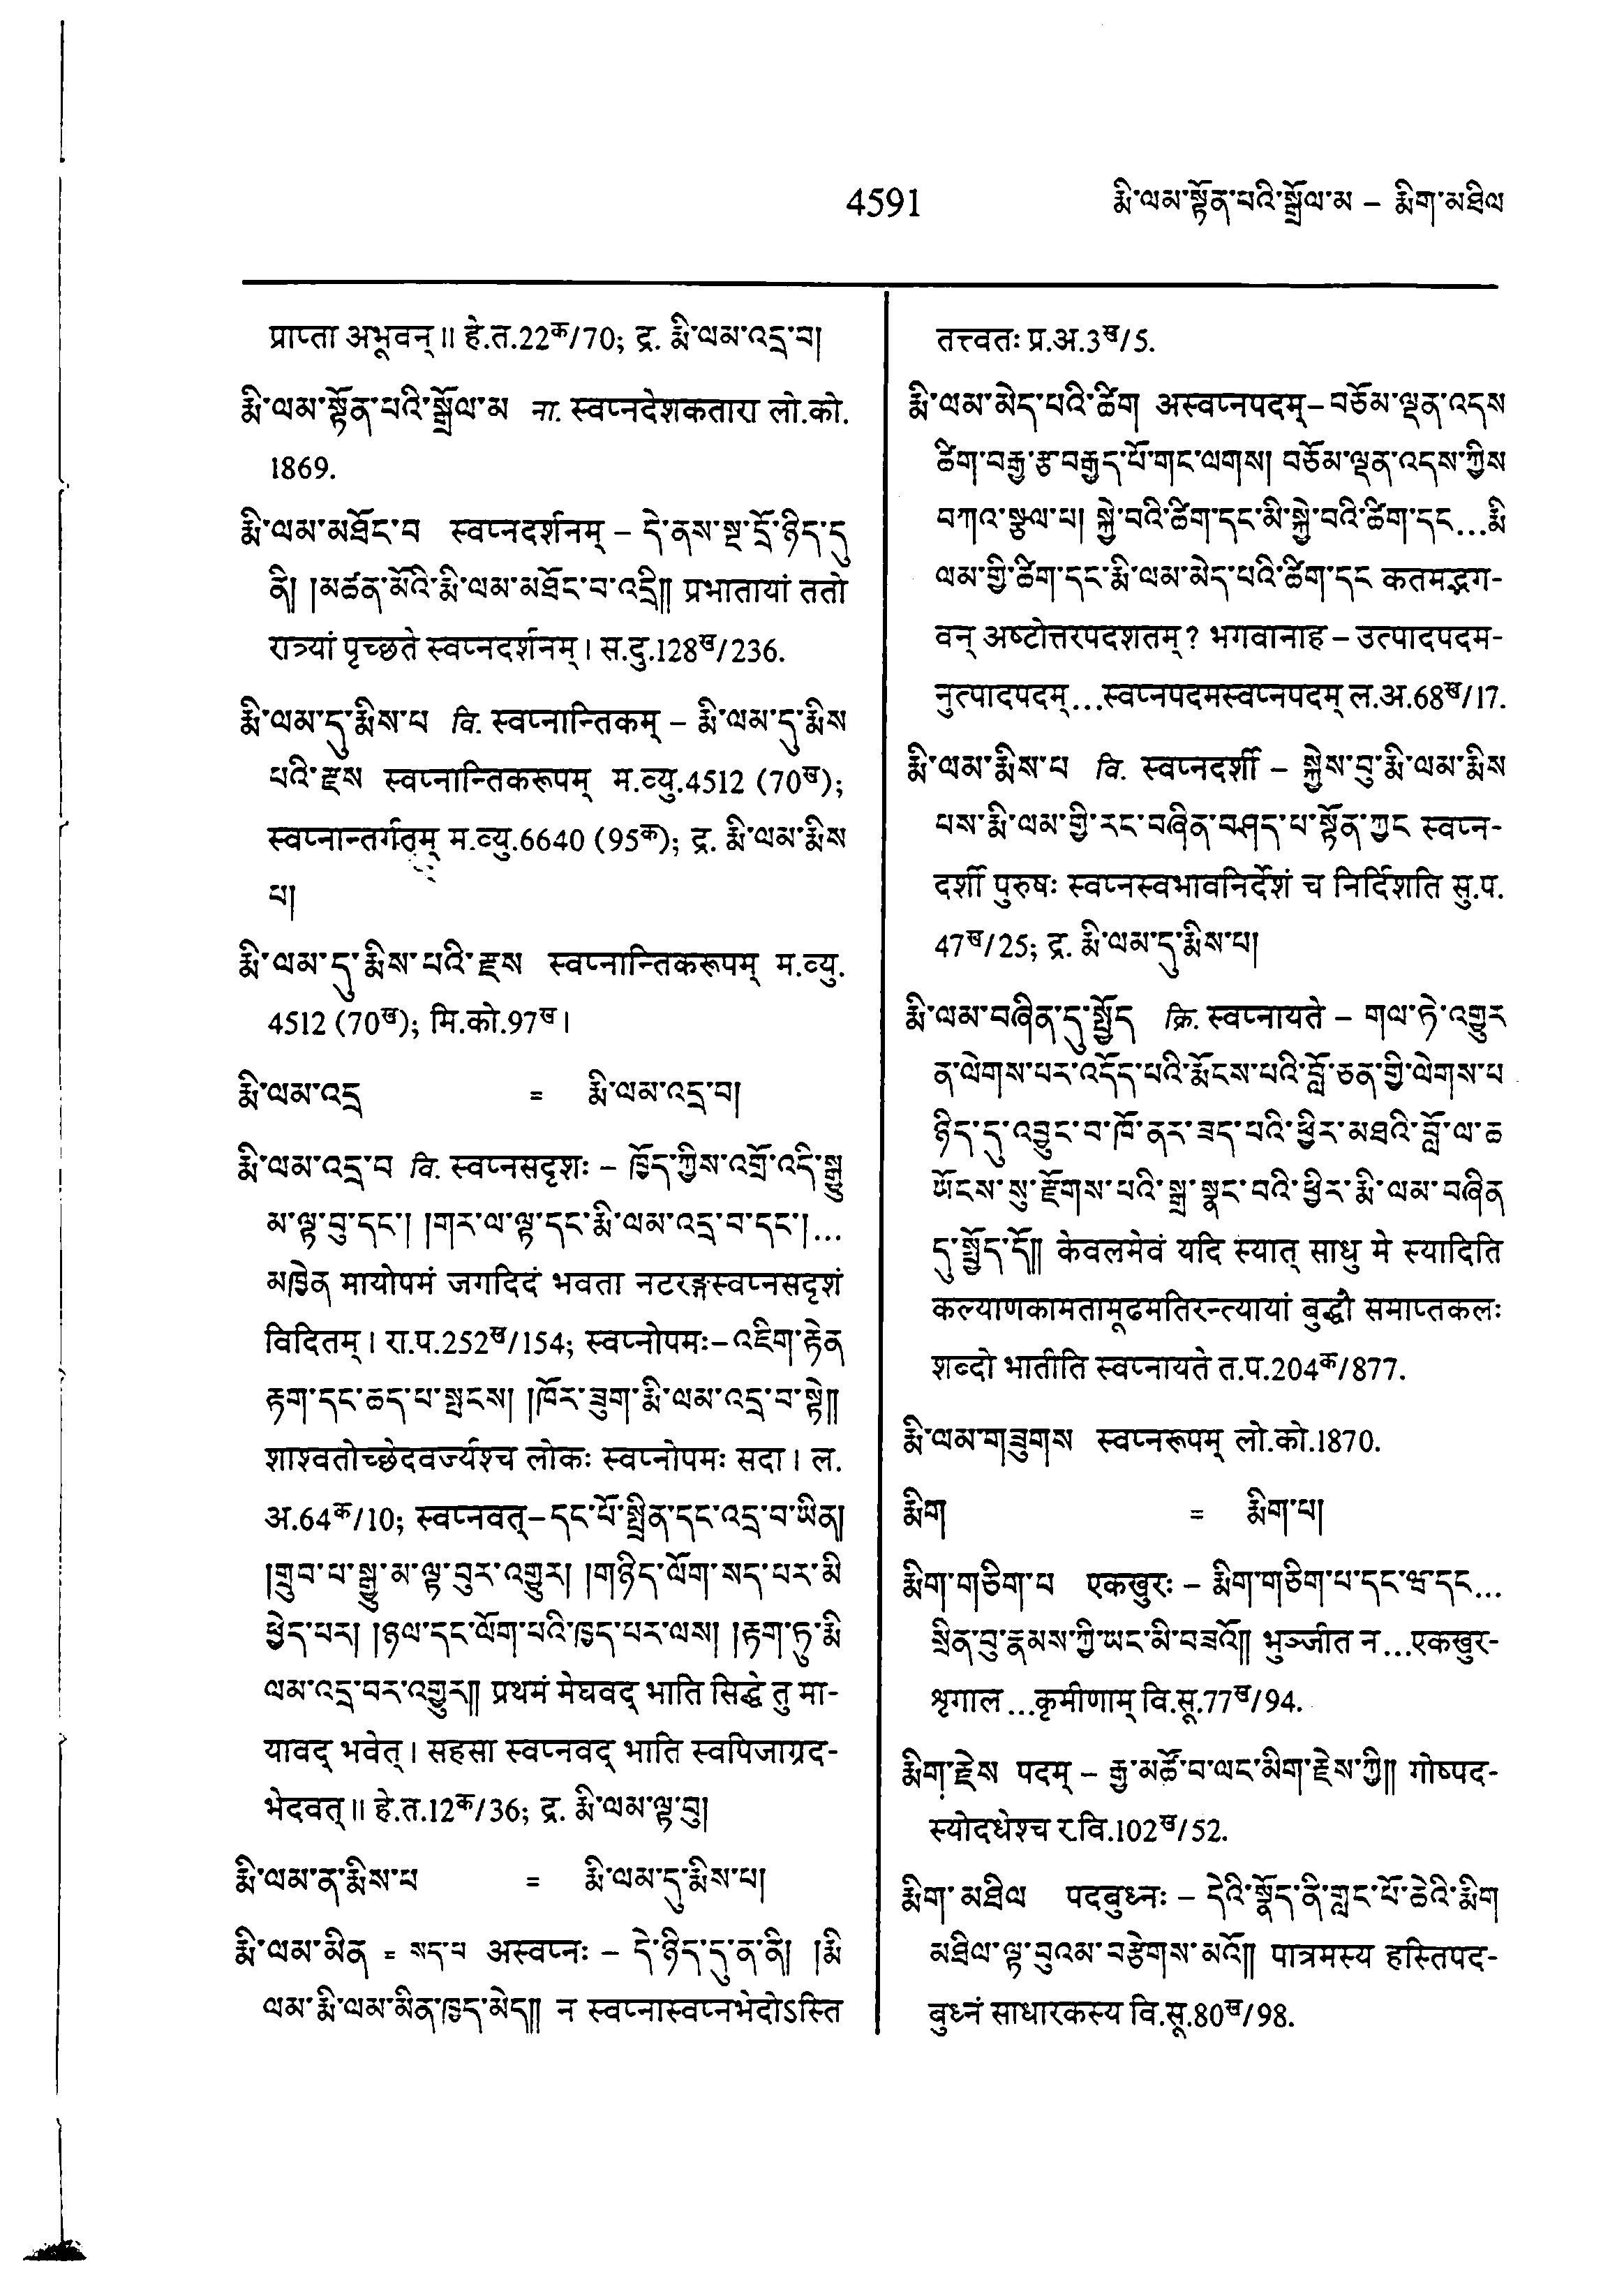 4591
རྨི་ལམ་སྟོན་པའི་སྒྲོལ་མ – རྨིག་མཐིལ
प्राप्ता अभूवन्॥ हे.त.22क/70; द्र. རྨི་ལམ་འདྲ་བ།
རྨི་ལམ་སྟོན་པའི་སྒྲོལ་མ ना. स्वप्नदेशकतारा लो.को.
1869.
རྨི་ལམ་མཐོང་བ स्वप्नदर्शनम् – དེ་ནས་སྔ་དྲོ་ཉིད་དུ
ནི། །མཚན་མོའི་རྨི་ལམ་མཐོང་བ་འདྲི།། प्रभातायां ततो
रात्र्यां पृच्छते स्वप्नदर्शनम्। स.दु.128ख/236.
རྨི་ལམ་དུ་རྨིས་པ वि. स्वप्नान्तिकम् – རྨི་ལམ་དུ་རྨིས
པའི་རྫས स्वप्नान्तिकरूपम् म.व्यु.4512 (70ख);
स्वप्नान्तर्गतम् म.व्यु.6640 (95क); द्र. རྨི་ལམ་རྨིས
པ།
རྨི་ལམ་དུ་རྨིས་པའི་རྫས स्वप्नान्तिकरूपम् म.व्यु.
4512 (70ख); मि.को.97ख।
རྨི་ལམ་འདྲ = རྨི་ལམ་འདྲ་བ།
རྨི་ལམ་འདྲ་བ वि. स्वप्नसदृशः – ཁྱོད་ཀྱིས་འགྲོ་འདི་སྒྱུ
མ་ལྟ་བུ་དང་། །གར་ལ་ལྟ་དང་རྨི་ལམ་འདྲ་བ་དང་།...
མཁྱེན मायोपमं जगदिदं भवता नटरङ्गस्वप्नसदृशं
विदितम्। रा.प.252ख/154; स्वप्नोपमः–འཇིག་རྟེན
རྟག་དང་ཆད་པ་སྤངས། །ཁོར་ཟུག་རྨི་ལམ་འདྲ་བ་སྟེ།།
शाश्वतोच्छेदवर्ज्यश्च लोकः स्वप्नोपमः सदा। ल.
अ.64क/10; स्वप्नवत्–དང་པོ་སྤྲིན་དང་འདྲ་བ་ཡིན།
།གྲུབ་པ་སྒྱུ་མ་ལྟ་བུར་འགྱུར། །གཉིད་ལོག་སད་པར་མི
ཕྱེད་པར། །ཉལ་དང་ལོག་པའི་ཁྱད་པར་ལས། །རྟག་ཏུ་རྨི
ལམ་འདྲ་བར་འགྱུར།། प्रथमं मेघवद् भाति सिद्धे तु मा-
यावद् भवेत्। सहसा स्वप्नवद् भाति स्वपिजाग्रद-
भेदवत्॥ हे.त.12क/36; द्र. རྨི་ལམ་ལྟ་བུ།
རྨི་ལམ་ན་རྨིས་པ = རྨི་ལམ་དུ་རྨིས་པ།
རྨི་ལམ་མིན = སད་པ अस्वप्नः – དེ་ཉིད་དུ་ན་ནི། །རྨི
ལམ་རྨི་ལམ་མིན་ཁྱད་མེད།། न स्वप्नास्वप्नभेदोऽस्ति
तत्त्वतः प्र.अ.3ख/5.
རྨི་ལམ་མེད་པའི་ཚིག अस्वप्नपदम्–བཅོམ་ལྡན་འདས
ཚིག་བརྒྱ་རྩ་བརྒྱད་པོ་གང་ལགས། བཅོམ་ལྡན་འདས་ཀྱིས
བཀའ་སྩལ་པ། སྐྱེ་བའི་ཚིག་དང་མི་སྐྱེ་བའི་ཚིག་དང...རྨི
ལམ་གྱི་ཚིག་དང་རྨི་ལམ་མེད་པའི་ཚིག་དང कतमद्भग-
वन् अष्टोत्तरपदशतम्? भगवानाह – उत्पादपदम-
नुत्पादपदम्...स्वप्नपदमस्वप्नपदम् ल.अ.68ख/17.
རྨི་ལམ་རྨིས་པ वि. स्वप्नदर्शी – སྐྱེས་བུ་རྨི་ལམ་རྨིས
པས་རྨི་ལམ་གྱི་རང་བཞིན་བཤད་པ་སྟོན་ཀྱང स्वप्न-
दर्शी पुरुषः स्वप्नस्वभावनिर्देशं च निर्दिशति सु.प.
47ख/25; द्र. རྨི་ལམ་དུ་རྨིས་པ།
རྨི་ལམ་བཞིན་དུ་སྤྱོད क्रि. स्वप्नायते – གལ་ཏེ་འགྱུར
ན་ལེགས་པར་འདོད་པའི་རྨོངས་པའི་བློ་ཅན་གྱི་ལེགས་པ
ཉིད་དུ་འབྱུང་བ་ཁོ་ནར་ཟད་པའི་ཕྱིར་མཐའི་བློ་ལ་ཆ
ཡོངས་སུ་རྫོགས་པའི་སྒྲ་སྣང་བའི་ཕྱིར་རྨི་ལམ་བཞིན
དུ་སྤྱོད་དོ།། केवलमेवं यदि स्यात् साधु मे स्यादिति
कल्याणकामतामूढमतिरन्त्यायां बुद्धौ समाप्तकलः
शब्दो भातीति स्वप्नायते त.प.204क/877.
རྨི་ལམ་གཟུགས स्वप्नरूपम् लो.को.1870.
རྨིག = རྨིག་པ།
རྨིག་གཅིག་པ एकखुरः – རྨིག་གཅིག་པ་དང་ཝ་དང...
སྲིན་བུ་རྣམས་ཀྱི་ཡང་མི་བཟའོ།། भुञ्जीत न...एकखुर-
शृगाल...कृमीणाम् वि.सू.77ख/94.
རྨིག་རྗེས पदम् – རྒྱ་མཚོ་བ་ལང་རྨིག་རྗེས་ཀྱི།། गोष्पद-
स्योदधेश्च र.वि.102ख/52.
རྨིག་མཐིལ पदबुध्नः – དེའི་སྣོད་ནི་གླང་པོ་ཆེའི་རྨིག
མཐིལ་ལྟ་བུའམ་བརྩེགས་མའོ།། पात्रमस्य हस्तिपद-
बुध्नं साधारकस्य वि.सू.80ख/98.